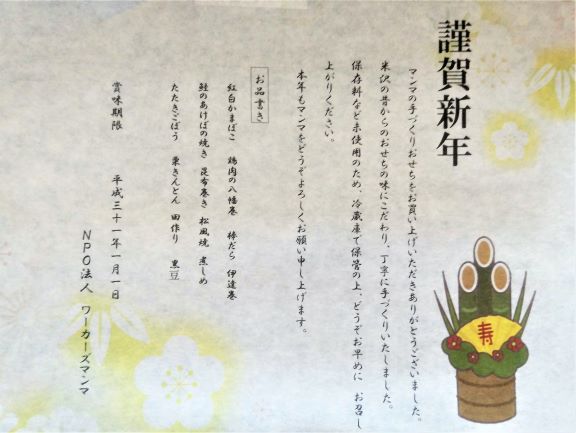 謹賀新年
マンマの手づくりおせちをお買い上げいただきありがとうございました。
米沢の昔からのおせちの味にこだわり、丁寧に手づくりいたしました。
保存料など未使用のため、冷蔵庫で保管の上、どうぞお早めに お召し
上がりください。
本年もマンマをどうぞよろしくお願い申し上げます。
お品書き
紅白かまぼこ 鶏肉の八幡巻 棒だら 伊達巻
鮭のあけぼの焼き 昆布巻き 松風焼 煮しめ
たたきごぼう 栗きんとん 田作り 黒豆
賞味期限 平成三十一年一月一日
NPO法人 ワーカーズマンマ
寿